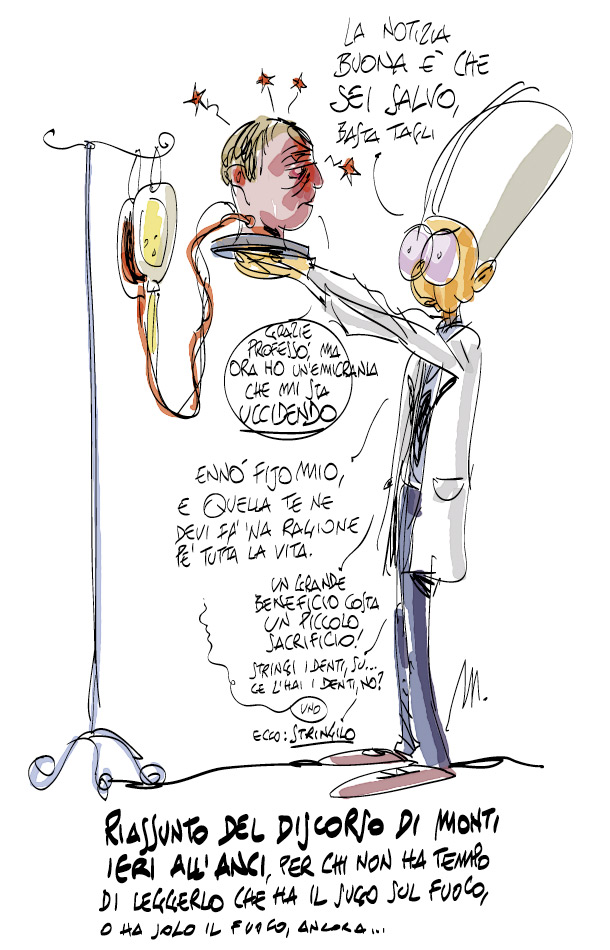 LA NOTIZIA
BUONA È CHE
SEI SALVO,
BASTA TAGLI
GRAZIE
PROFESSÒ, MA
ORA HO UN'EMICRANIA
CHE MI STA
UCCIDENDO
ENNÒ FIJO MIO,
E QUELLA TE NE
DEVI FÀ 'NA RAGIONE
PÈ TUTTA LA VITA.
UN GRANDE
BENEFICIO COSTA
UN PICCOLO
SACRIFICIO!
STRINGI I DENTI, SU...
CE L'HAI I DENTI, NO?
UNO
ECCO: STRINGILO
M.
RIASSUNTO DEL DISCORSO DI MONTI
IERI ALL'ANCI, PER CHI NON HA TEMPO
DI LEGGERLO CHE HA IL SUGO SUL FUOCO,
O HA SOLO IL FUOCO, ANCORA...